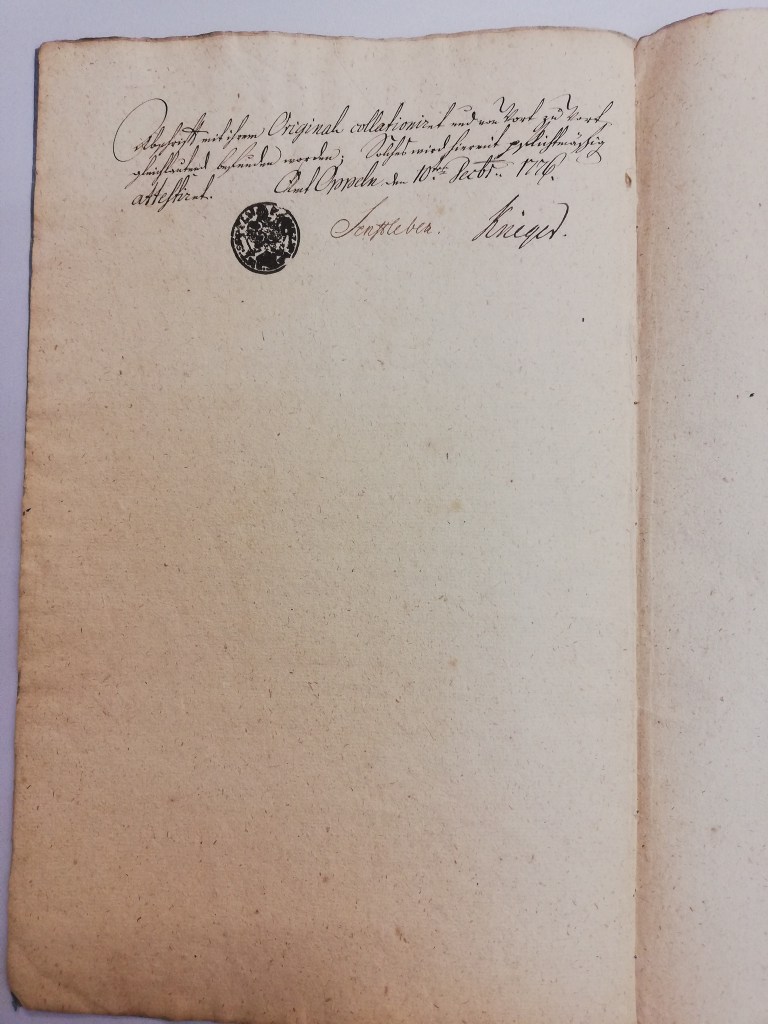 Abschrifft mit ihrem Original collationiret und von Wort zu Wort
gleichlautend befunden worden; Solches wird hiermit pflichtmäßig
attestiret. Amt Oppeln den 10ten Decbr. 1776.
Senftleben. Krieger.